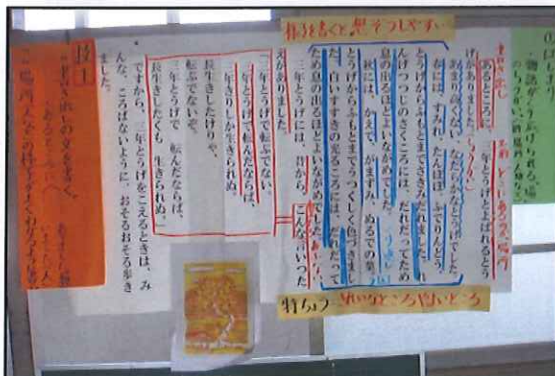 様子を書くと想ぞうしやすい
書き出し
あるところに、三年とうげとよばれるとう
げがありました。
あまり高くない、なだらかなとうげでした。
春には、すみれ、たんぽぽ、ふでりんどう。
とうげからふもとまでさきみだれました。れ
んげつつじのさくころには、だれだってため
息の出るほどよいながめでした。
秋には、かえで、がまずみ、ぬるでの葉。
とうげからふもとまでうつくしく色づきまし
た。白いすすきの光るころには、だれだって
ため息の出るほどよいながめでした。
三年とうげには、昔から、こんな言いつた
えがありました。
「三年とうげで転ぶでない。
三年とうげで転んだならば、
三年きりしか生きられぬ。
長生きしたけりゃ、
転ぶでないぞ。
三年とうげで転んだならば、
長生きしたくも生きられぬ。」
ですから、三年とうげをこえるときは、み
んな、ころばないように、おそるおそる歩き
ました。
特ちょう
技1
書き出しの文を書く。